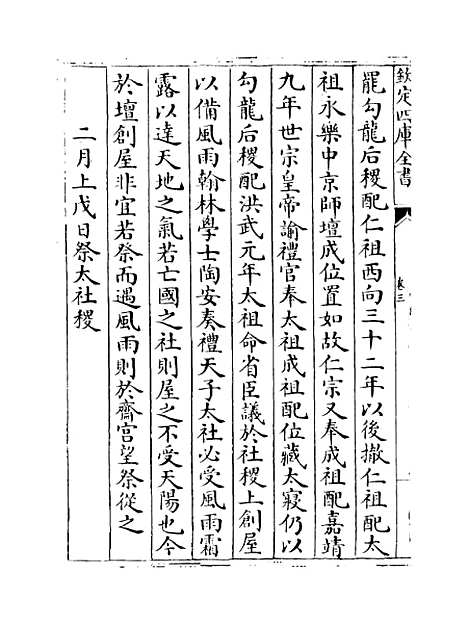 欽定四庫全書
卷三
罷勾龍后稷配仁祖西向三十二年以後撤仁祖配太
祖永樂中京師壇成位置如故仁宗又奉成祖配嘉靖
九年世宗皇帝諭禮官奉太祖成祖配位藏太寢仍以
勾龍后稷配洪武元年太祖命省臣議於社稷上創屋
以備風雨翰林學士陶安奏禮天子太社必受風雨霜
露以達天地之氣若亡國之社則屋之不受天陽也今
於壇創屋非宜若祭而遇風雨則於齋宫望祭從之
二月上戊日祭太社稷